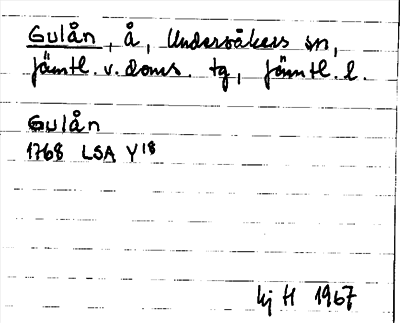 Gulån, å, Undersåkers sn,
Jämtl. v. doms. tg, Jämtl. l.
Gulån
1768 LSA Y18
kj H 1967